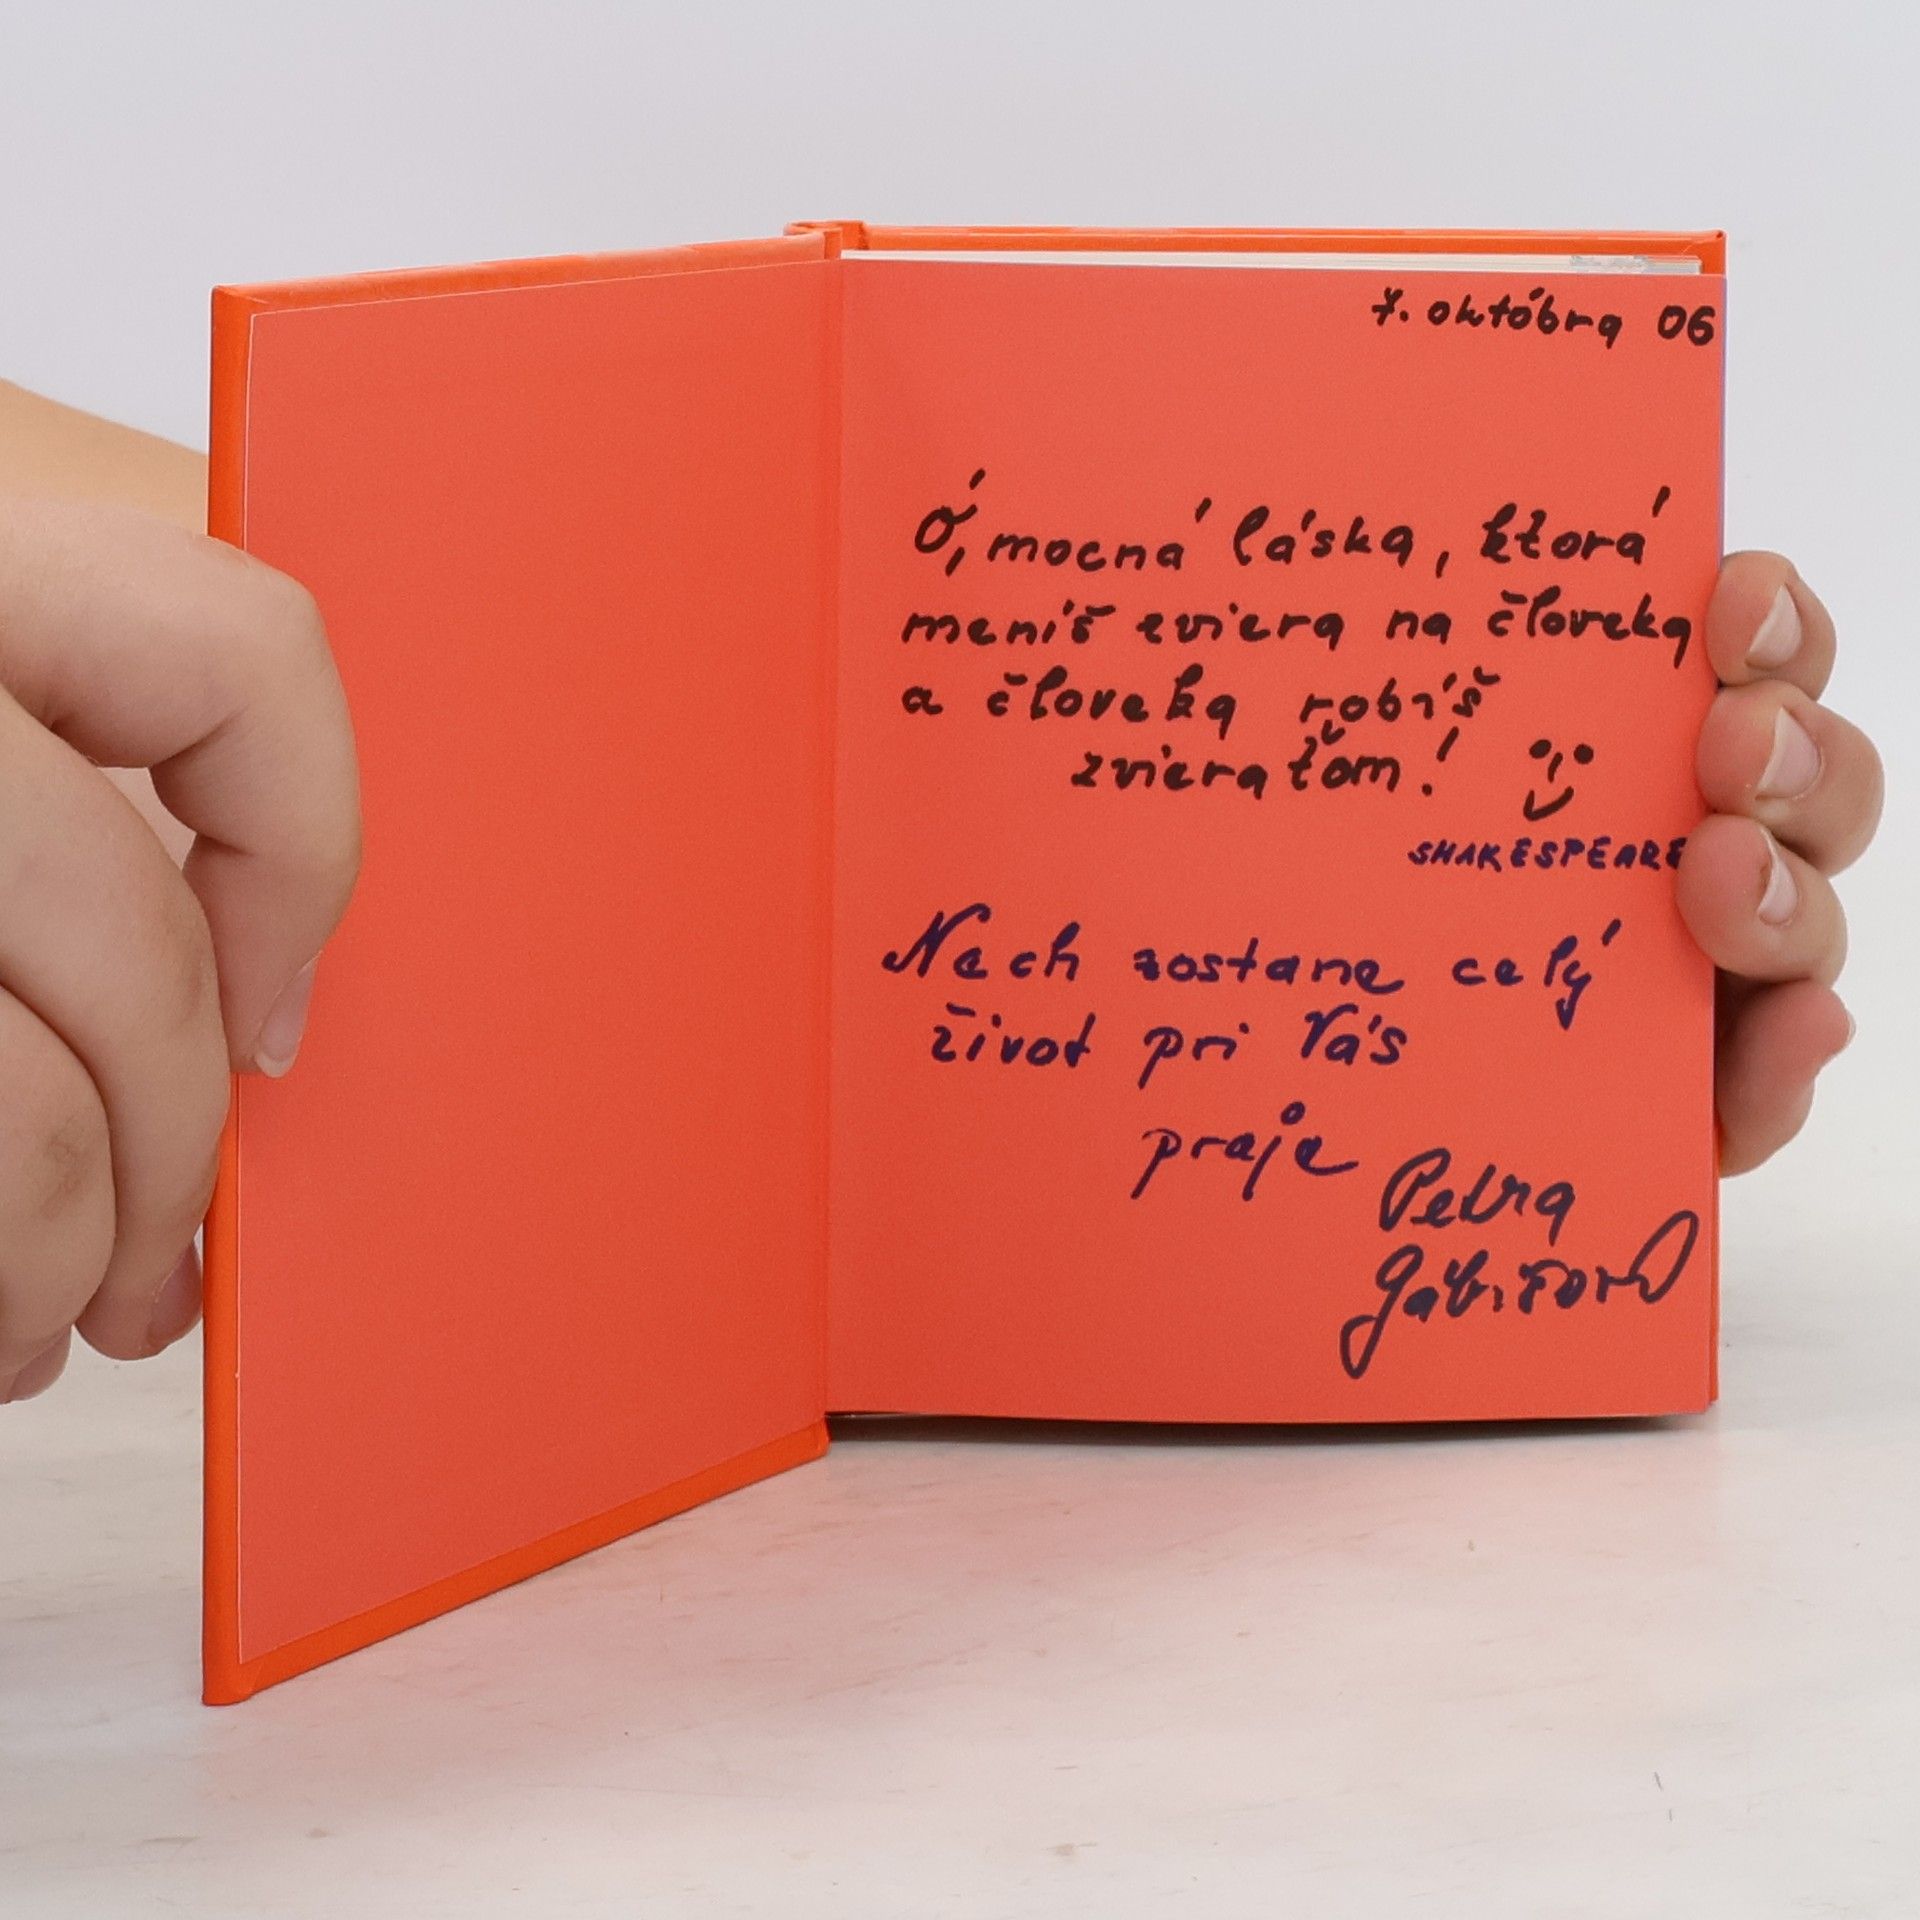 7. októbra 06
Ó, mocná láska, ktorá
meníš zviera na človeka
a človeka robíš
zvieraťom!
SHAKESPEARE
Nech zostane celý
život pri Vás
praje
Petra